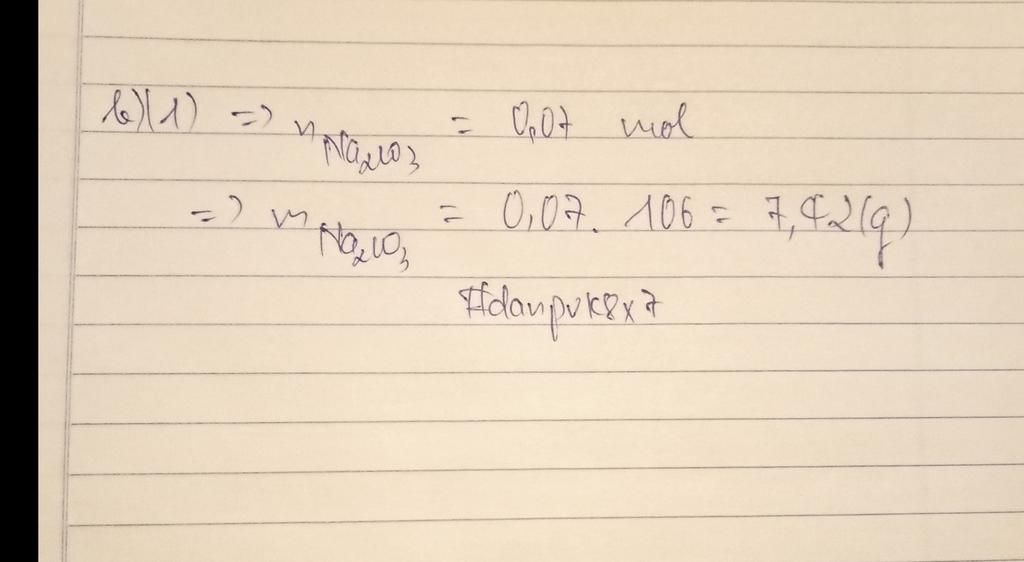 b)(1) => n Na₂CO₃ = 0,07 mol
=> m Na₂CO₃ = 0,07. 106 = 7,42(g)
#danpvk8x7